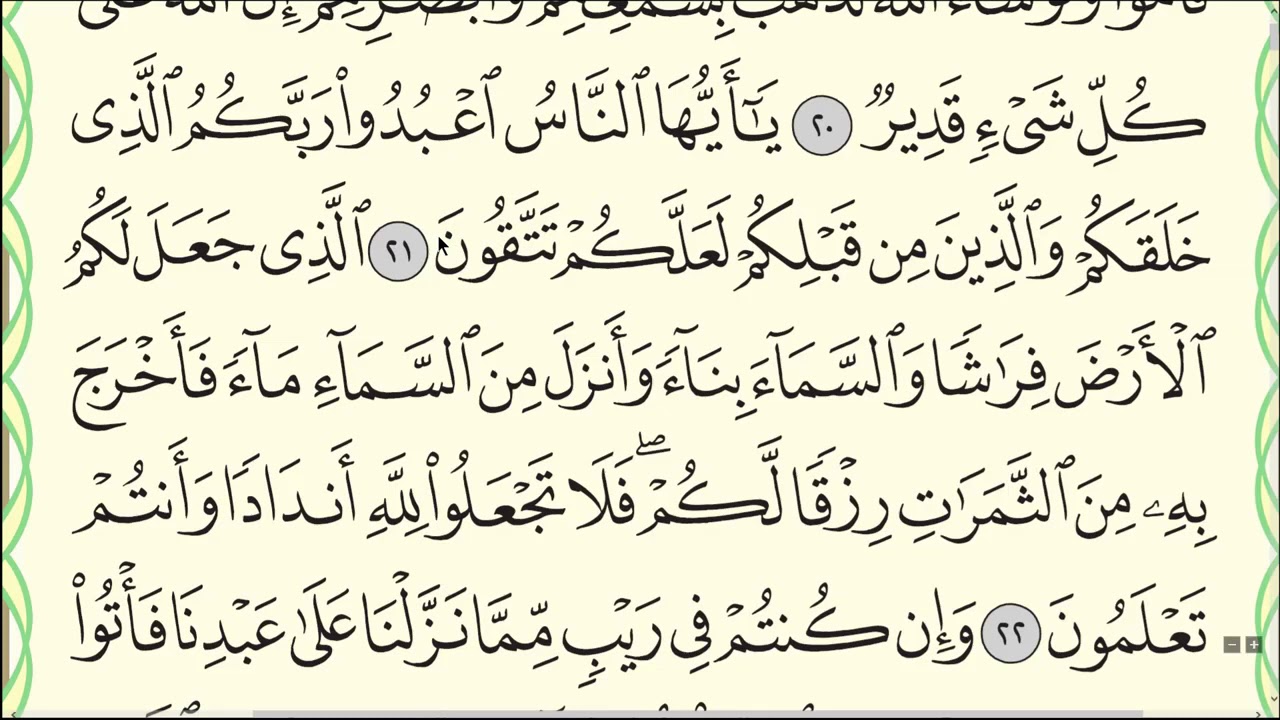 كُلِّ شَىْءٍ قَدِيرٌ ٢٠ يَٰٓأَيُّهَا ٱلنَّاسُ ٱعْبُدُوا۟ رَبَّكُمُ ٱلَّذِى
خَلَقَكُمْ وَٱلَّذِينَ مِن قَبْلِكُمْ لَعَلَّكُمْ تَتَّقُونَ ٢١ ٱلَّذِى جَعَلَ لَكُمُ
ٱلْأَرْضَ فِرَٰشًا وَٱلسَّمَآءَ بِنَآءً وَأَنزَلَ مِنَ ٱلسَّمَآءِ مَآءً فَأَخْرَجَ
بِهِۦ مِنَ ٱلثَّمَرَٰتِ رِزْقًا لَّكُمْ ۖ فَلَا تَجْعَلُوا۟ لِلَّهِ أَندَادًا وَأَنتُمْ
تَعْلَمُونَ ٢٢ وَإِن كُنتُمْ فِى رَيْبٍ مِّمَّا نَزَّلْنَا عَلَىٰ عَبْدِنَا فَأْتُوا۟